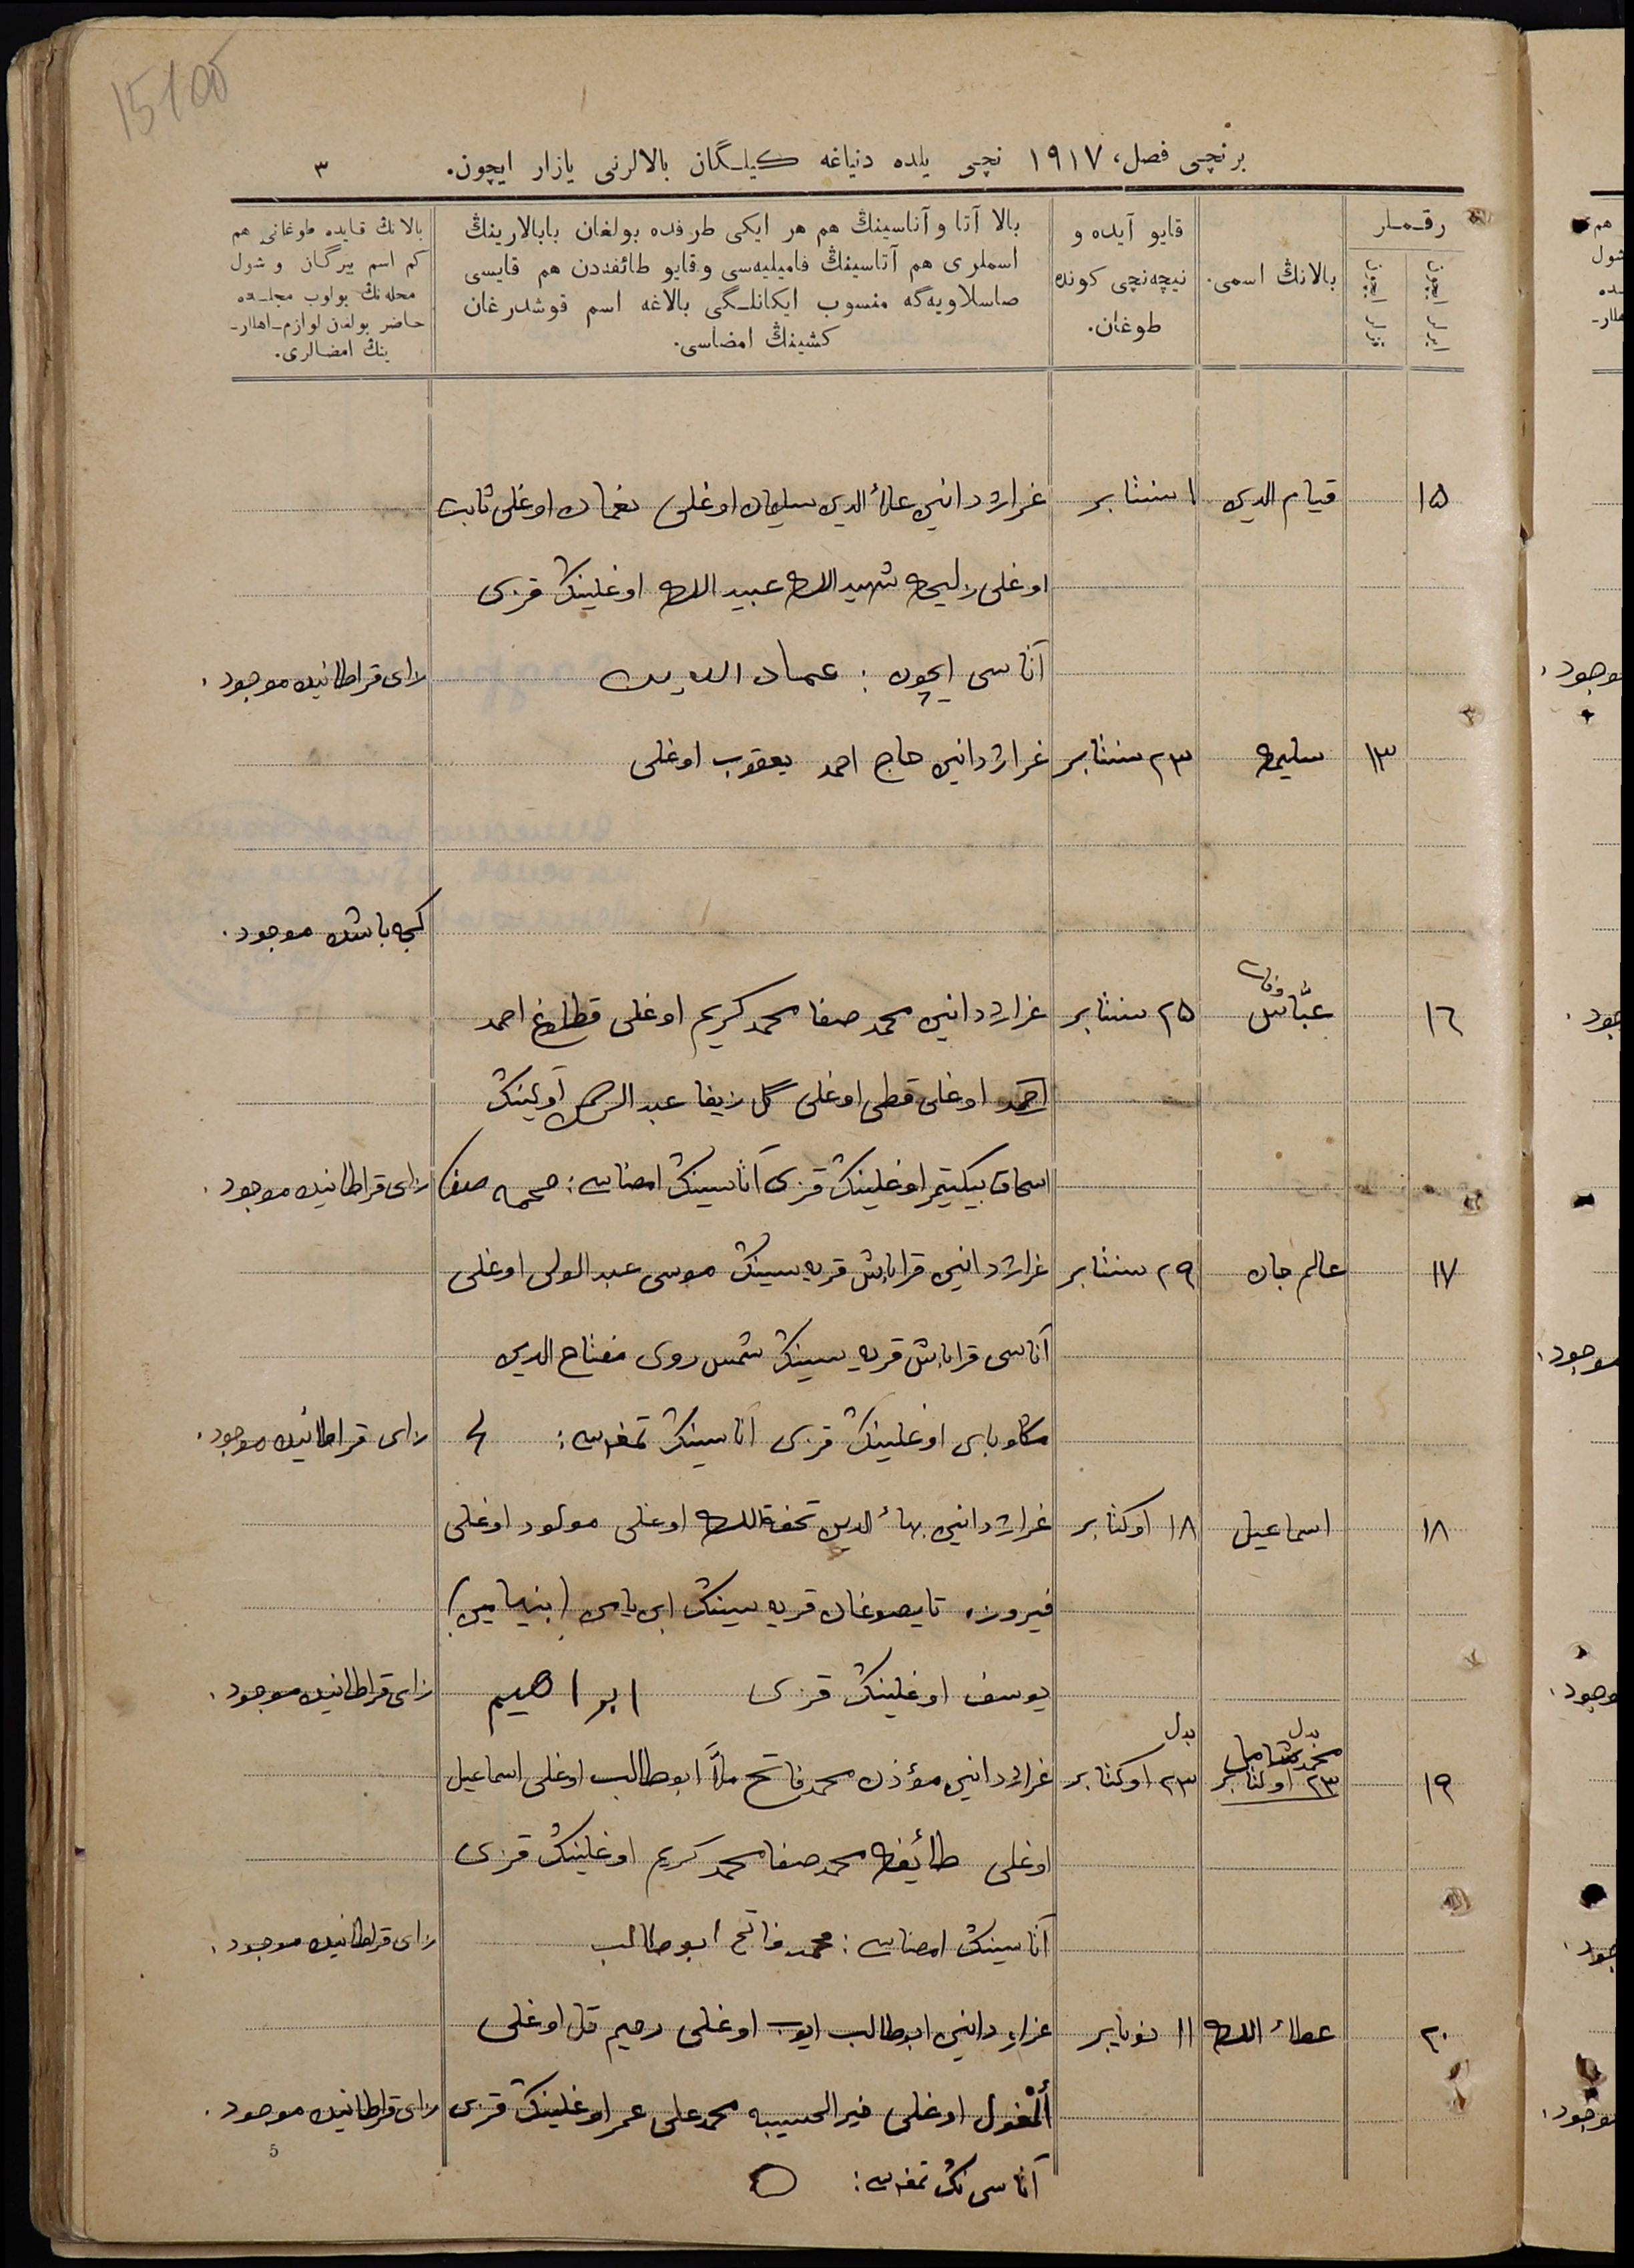 15100
برنچی فصل، ١٩١٧ نچی یلده دنیاغه كیلـگان بالالرنی یازار ایچون.
٣
رقـمـلر
ایرلر ایچون
قزلر ایچون
بالانڭ اسمی.
قایو آیده و
نیچه‌نچی كونده
طوغان.
بالا آتا و آناسینڭ هم هر ایكی طرفده بولغان بابالارینڭ
اسملری هم آتاسینڭ فامیلیه‌سی وقایو طائفه‌دن هم قایسی
صاسلاویه‌گه منسوب ایكانلـگی بالاغه اسم قوشدرغان
كشینڭ امضاسی.
بالانڭ قایده طوغانی هم
كم اسم بیرگان و شول
محله‌نڭ بولوب مجلـده
حاضر بولغان لوازم-اهللر-
ینڭ امضالری.
١٥
قیام الدین
١ سنتابر
غراژدانین علاء الدین سلیمان اوغلی نعمان اوغلی ثابت
اوغلی زلیحه شهید الله عبید الله اوغلینڭ قزی
آتاسی ایچون: عماد الدین
زای قراطانیده موجود.
١٣
سلیمه
٢٣ سنتابر
غراژدانین حاج احمد یعقوب اوغلی
كچه باشده موجود.
١٦
وفات
عبّاس
٢٥ سنتابر
غراژدانین محمد صفا محمد كریم اوغلی قطلاغ احمد
احمد اوغلی قطی اوغلی گل زیفا عبد الرحمن
اسحاق بیكتیمر اوغلینڭ قزی آتاسینڭ امضاسی: محمد صفا
زای قراطانیده موجود.
١٧
عالم جان
٢٩ سنتابر
غراژدانین قراباش قریه‌سینڭ موسی عبد الولی اوغلی
آناسی قراباش قریه‌سینڭ شمس روی مفتاح الدین
اوغلینڭ قزی آتاسینڭ تمغه‌سی:
زای قراطانیده موجود.
١٨
اسماعیل
١٨ اوكتابر
غراژدانین بهاء الدین تحفة الله اوغلی مولود اوغلی
فیروزه تایصوغان قریه‌سینڭ ابن یامین (بنیامین)
یوسف اوغلینڭ قزی ابراهیم
زای قراطانیده موجود.
١٩
بدل
محمد شامل
٢٣ اوكتابر
بدل
٢٣ اوكتابر
غراژدانین مؤذن محمد فاتح ملاّ ابوطالب اوغلی اسماعیل
اوغلی طائیفه محمد صفا محمد كریم اوغلینڭ قزی
آتاسینڭ امضاسی: محمد فاتح ابوطالب
زای قراطانیده موجود.
٢٠
عطاء الله
١١ نویابر
غراژدانین ابوطالب ایوب اوغلی رحیم قل اوغلی
ألمغول اوغلی خیر الحسیبه محمد علی عمر اوغلینڭ قزی
زای قراطانیده موجود.
آتاسی نڭ تمغه‌سی:
5